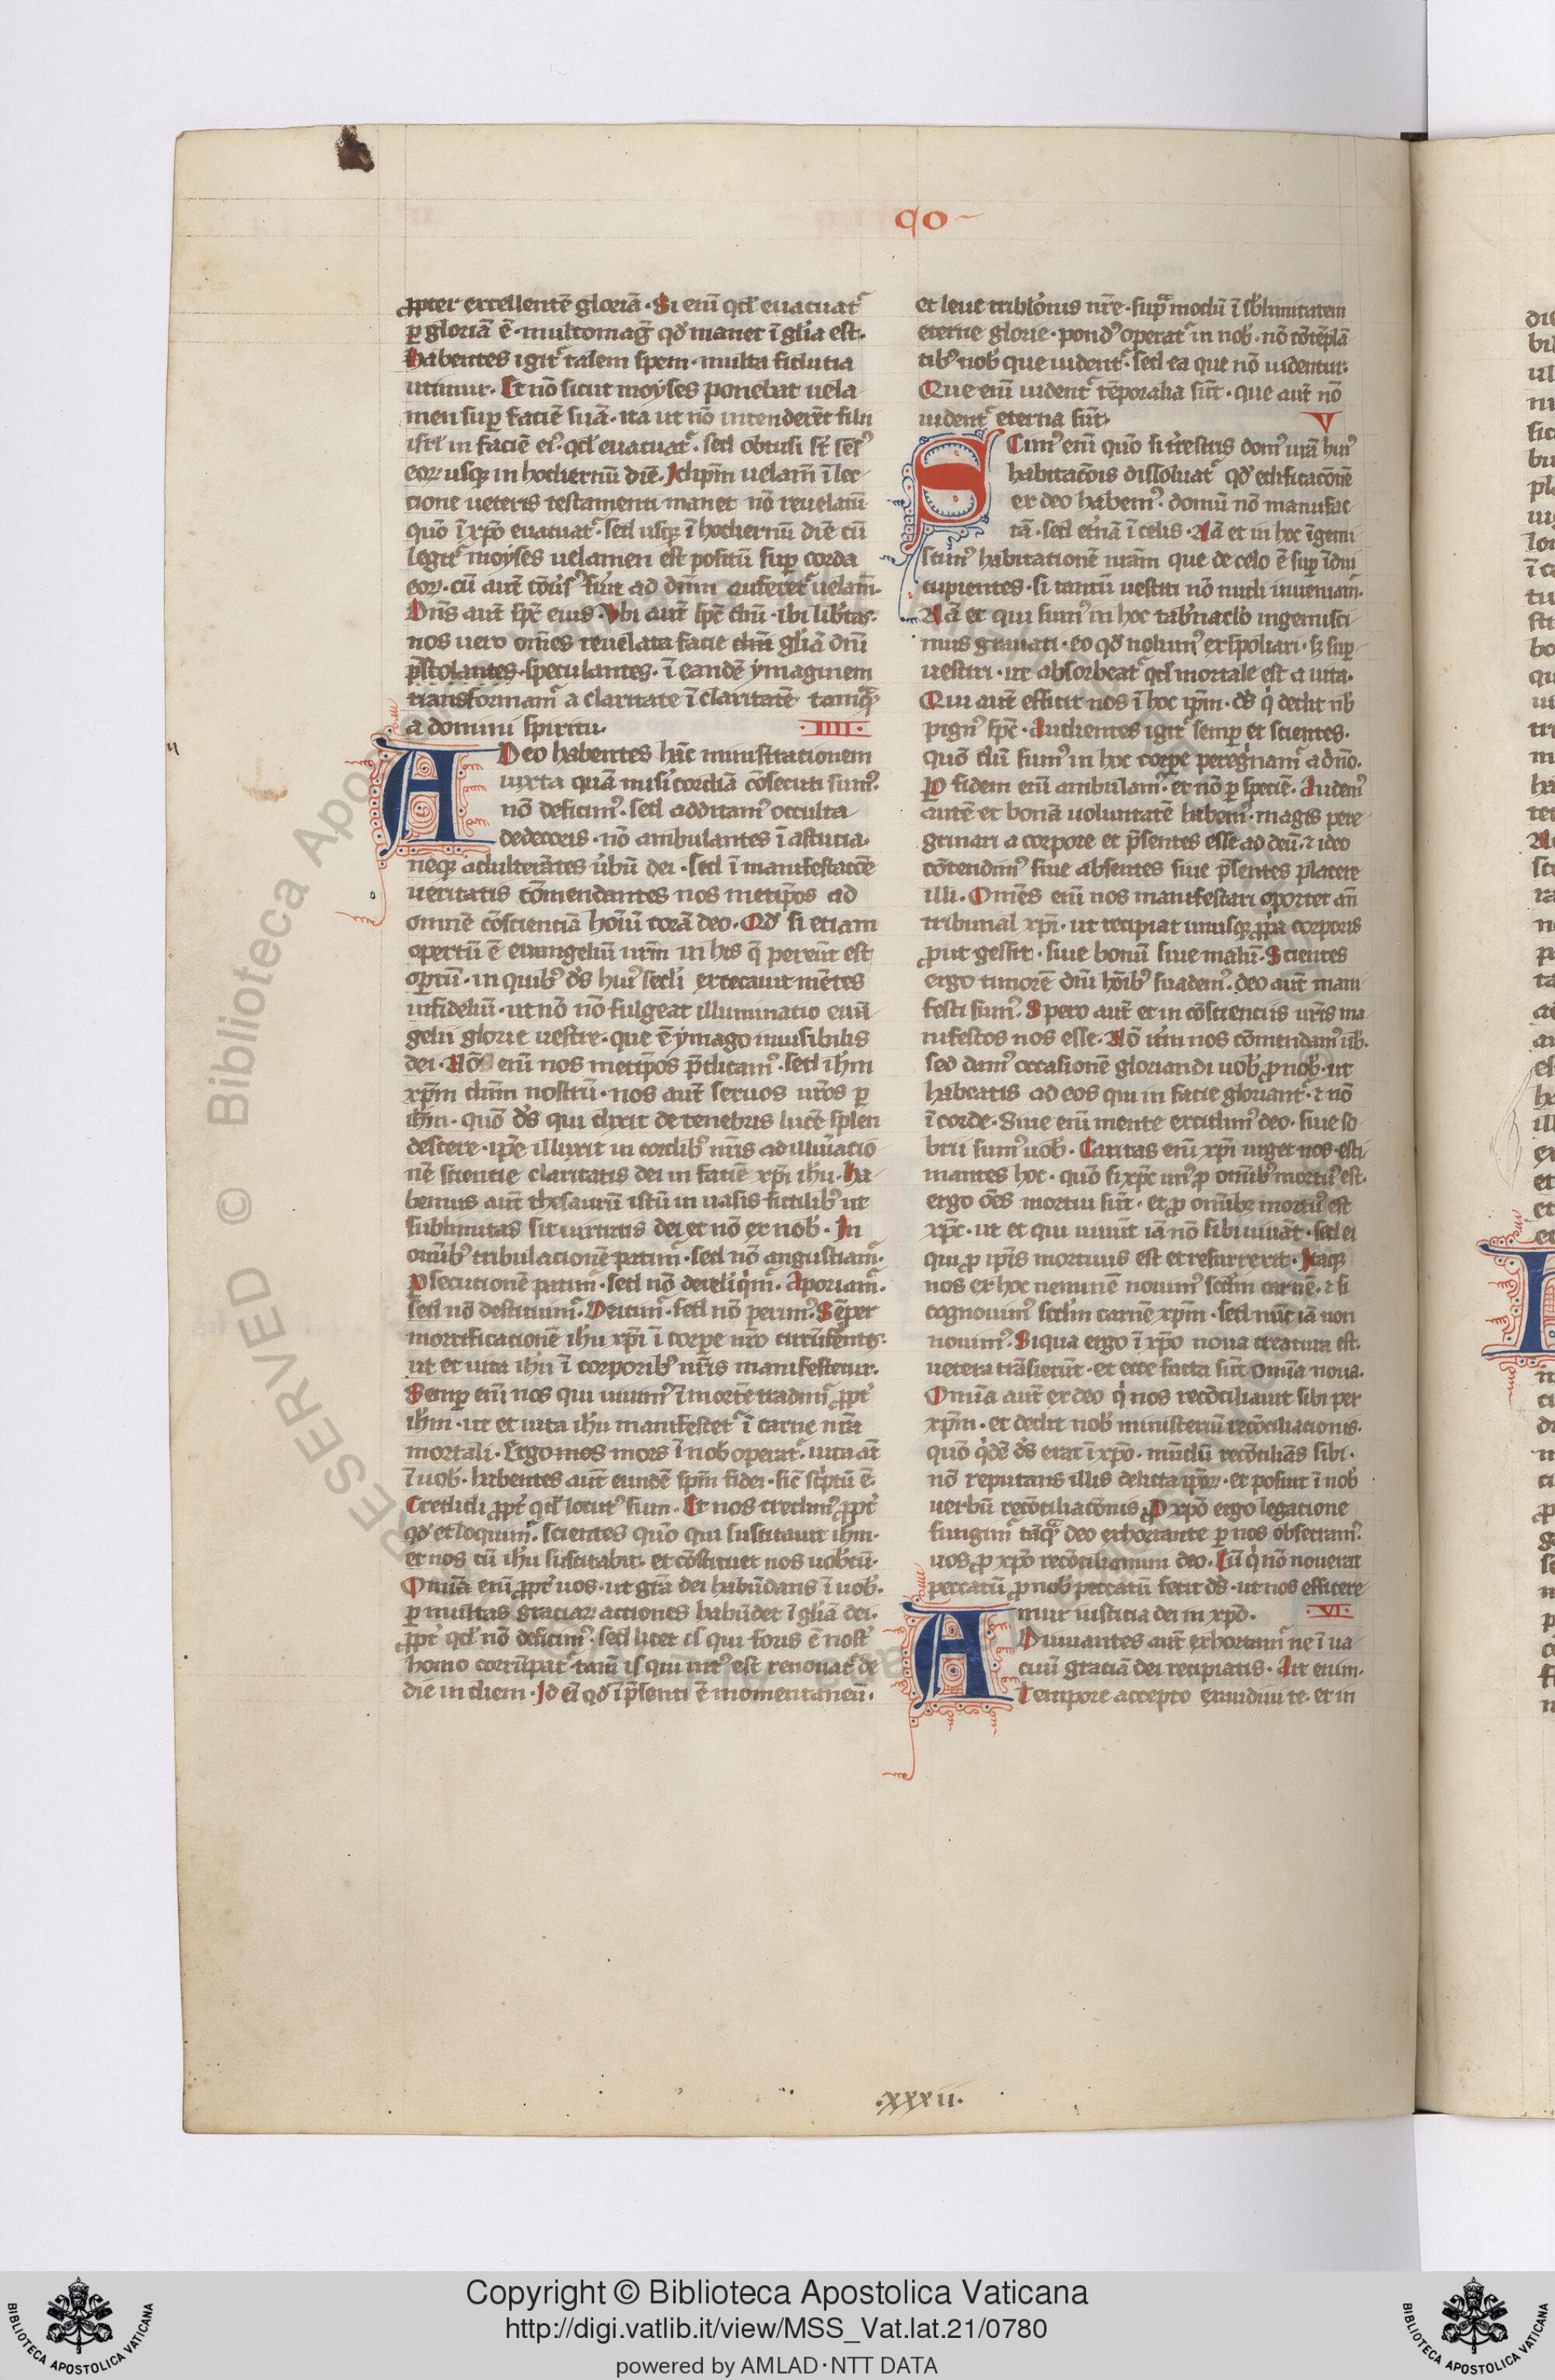 ꝯo
ꝓpter excellentē gloriā · Si enī qđ euacuat᷑
ꝑ gloriā ē · multomaḡ qđ manet ī gľia est ·
habentes igit᷑ talem spem · multa fiducia
utimur · Et nō sicut moyses ponebat uela
men suꝑ faciē suā · ita ut nō intenderēt filii
isrľ in faciē eiꝰ · qđ euacuat᷑ · sed obtusi sī̄t sēsꝰ
eoꝝ usqꝫ in hodiernū diē · Idip̄m uelam̄ ī lec
tione ueteris testamenti manet nō reuelatū
quō ī xp̄o euacuat᷑ · sed usqꝫ ī hodiernū diē cū
legit᷑ moyses uelamen est positū suꝑ corda
eoꝝ · cū aut̄ cōūsꝰ fūit ad dn̄m auferet᷑ uelam̄ ·
Dn̄s aut̄ sp̄c eius · Vbi aut̄ sp̄c dn̄i · ibi lib̾tas ·
nos uero om̄es reuelata facie dn̄i gľiā dn̄i
p̄stolantes · speculantes · ī eandē ymaginem
transformam᷑ a claritate ī claritatē tamqᷓ
a domini spiritu · · IIII ·
ADeo habentes hāc ministrationem
iuxta quā mis̾icordiā cōsecuti sumꝰ ·
nō deficimꝰ · sed abdicamꝰ occulta
dedecoris · nō ambulantes ī astucia ·
neqꝫ adulterātes ūbū dei · sed ī manifestacōe
ueritatis cōmendantes nos metip̄os ad
omnē cōscientiā hoīū corā deo · Qđ si etiam
opertū ē euangeliū nr̄m in his q̄ pereūt est
opertū · in quibꝰ dꝰs huiꝰ secľi excecauit mētes
infideliū · ut nō nō fulgeat illuminatio euā
gelii glorie uestre · que ē ymago inuisibilis
dei · Nō enī nos metip̄os p̄dicamꝰ · sed ih̄m
xp̄m dn̄m nostrū · nos aut̄ seruos ur̄os ꝑ
ih̄m · quō dꝰs qui dixit de tenebris lucē splen
descere · ip̄e illuxit in cordibꝰ nr̄is ad illuīatio
nē scientie claritatis dei in faciē xp̄i ih̄u · Ha
bemus aut̄ thesaurū istū in uasis fictilibꝰ ut
sublimitas sit uirtutis dei et nō ex nob̾ · In
om̄ibꝰ tribulacionē patim᷑ · sed nō angustiam᷑ ·
Ꝑsecutionē patim᷑ · sed nō dereliq̄m᷑ · Aporiam᷑ ·
sed nō destituim᷑ · Deicim᷑ · sed nō perimꝰ · Sēper
mortificationē ih̄u xp̄i ī corpe nr̄o circūferētes ·
ut et uita ih̄u ī corporibꝰ nr̄is manifestetur ·
Semꝑ enī nos qui uiuimꝰ ī mortē tradim᷑ ꝓpt̾
ih̄m · ut et uita ih̄u manifestet᷑ ī carne nr̄a
mortali · Ergo mos mors ī nob̾ operat᷑ · uita āt
ī uob̾ · habentes aut̄ eundē sp̄m fidei · sic̄ sc̾ptū ē ·
Credidi ꝓpt̾ qđ locutꝰ sum · Et nos credimꝰ ꝓpt̾
qđ et loquim᷑ · scientes quō qui suscitauit ih̄m ·
et nos cū ih̄u suscitabit · et cōstituet nos uob̾cū ·
Omīa enī ꝓpt̾ uos · ut gr̄a dei habūdans ī uob̾ ·
ꝑ multas graciaꝝ actiones habūdet ī gľiā dei ·
ꝓpt̾ qđ nō deficimꝰ · sed licet is qui foris ē nost̾
homo corrūpat᷑ tam̄ is qui int̾ est renouat᷑ de
die in diem · Id eī qđ ī p̄senti ē momentaneū ·
et leue tribľonis nr̄e · supᷓ modū ī sb̾limitatem
eterne glorie · pondꝰ operat᷑ in nob̾ · nō cōtēplā
tibꝰ nob̾ que uident᷑ · sed ea que nō uidentur ·
Que enī uident᷑ tēporalia sūt · que aut̄ nō
uident᷑ eterna sūt · V
SCimꝰ enī quō si t̾restris domꝰ nr̄a huiꝰ
habitacōis dissoluat᷑ qđ edificacōnē
ex deo habemꝰ · domū nō manufac
tā · sed et̾nā ī celis · Nā et in hoc īgemi
scimꝰ habitationē nr̄am que de celo ē suꝑ īdui
cupientes · si tamū uestiti nō nudi inueniam᷑ ·
Nā et qui sumꝰ in hoc tab̾nacľo ingemisci
mus grauati · eo qđ nolumꝰ expoliari · sꝫ suꝑ
uestiri · ut absorbeat᷑ qđ mortale est a uita ·
Qui aut̄ efficit nos ī hoc ip̄m · dꝰs q̾ dedit nb̾
pignꝰ sp̄c · Audientes igit᷑ semꝑ et scientes ·
quō dū sumꝰ in hoc corpe peregͥnam᷑ a dn̄o ·
Ꝑ fidem enī ambulamꝰ · et nō ꝑ speciē · Audemꝰ
autē et bonā uoluntatē habemꝰ · magis pere
grinari a corpore et p̄sentes esse ad deū · ⁊ ideo
cōtendimꝰ siue absentes siue p̄sentes placere
illi · Omēs enī nos manifestari oportet an̄
tribunal xp̄i · ut recipiat unusqꝫ ꝓpͥa corporis
ꝓut gessit · siue bonū siue malū · Scientes
ergo timorē dn̄i hōibꝰ suademꝰ · deo aut̄ mani
festi sumꝰ · Spero aut̄ et in cōscienciis ur̄is ma
nifestos nos esse · Nō it̾m nos cōmendamꝰ ūb̾ ·
sed damꝰ occasionē gloriandi uob̾ ꝓ nob̾ · ut
habeatis ad eos qui in facie gloriant᷑ · ⁊ nō
ī corde · Siue enī mente excidimꝰ deo · siue so
brii sumꝰ uob̾ · Caritas enī xp̄i urget nos · esti
mantes hoc · quō si xp̄c unꝰ ꝓ om̄ibꝰ mortuꝰ est ·
ergo oēs mortui sūt · et ꝓ omībꝫ mortuꝰ est
xp̄c · ut et qui uiuūt iā nō sibi uiuāt · sed ei
qui ꝓ ip̄is mortuus est et resurrexit · Itaqꝫ
nos ex hoc neminē nouimꝰ scd̄m carnē · ⁊ si
cognouimꝰ scd̄m carnē xp̄m · sed nūc iā non
nouimꝰ · Siqua ergo ī xp̄o noua creatura est ·
uetera trāsierūt · et ecce facta sūt omīa noua ·
Omīa aut̄ ex deo q̾ nos recōciliauit sibi per
xp̄m · et dedit nob̾ ministeriū recōciliationis ·
quō q̾dē dꝰs erat ī xp̄o · mūdū recōciliās sibi ·
nō reputans illis delicta ip̄oꝝ · et posuit ī nob̾
uerbū recōciliacōnis · Ꝓ xp̄o ergo legatione
fungim᷑ tāqᷓ deo exhortante ꝑ nos obsecramꝰ ·
uos ꝓ xp̄o recōciliamini deo · Eū q̾ nō nouerat
peccatū ꝓ nob̾ peccatū fecit dꝰs · ut nos efficere
mur iusticia dei in xp̄o · · VI ·
ADiuuantes aut̄ exhortam᷑ ne ī ua
cuū graciā dei recipiatis · Ait enim ·
Tempore accepto exaudiui te · et in
· xxxii ·
RESERVED © Biblioteca Apo
Copyright © Biblioteca Apostolica Vaticana
http://digi.vatlib.it/view/MSS_Vat.lat.21/0780
powered by AMLAD · NTT DATA
BIBLIOTECA APOSTOLICA VATICANA
BIBLIOTECA APOSTOLICA VATICANA